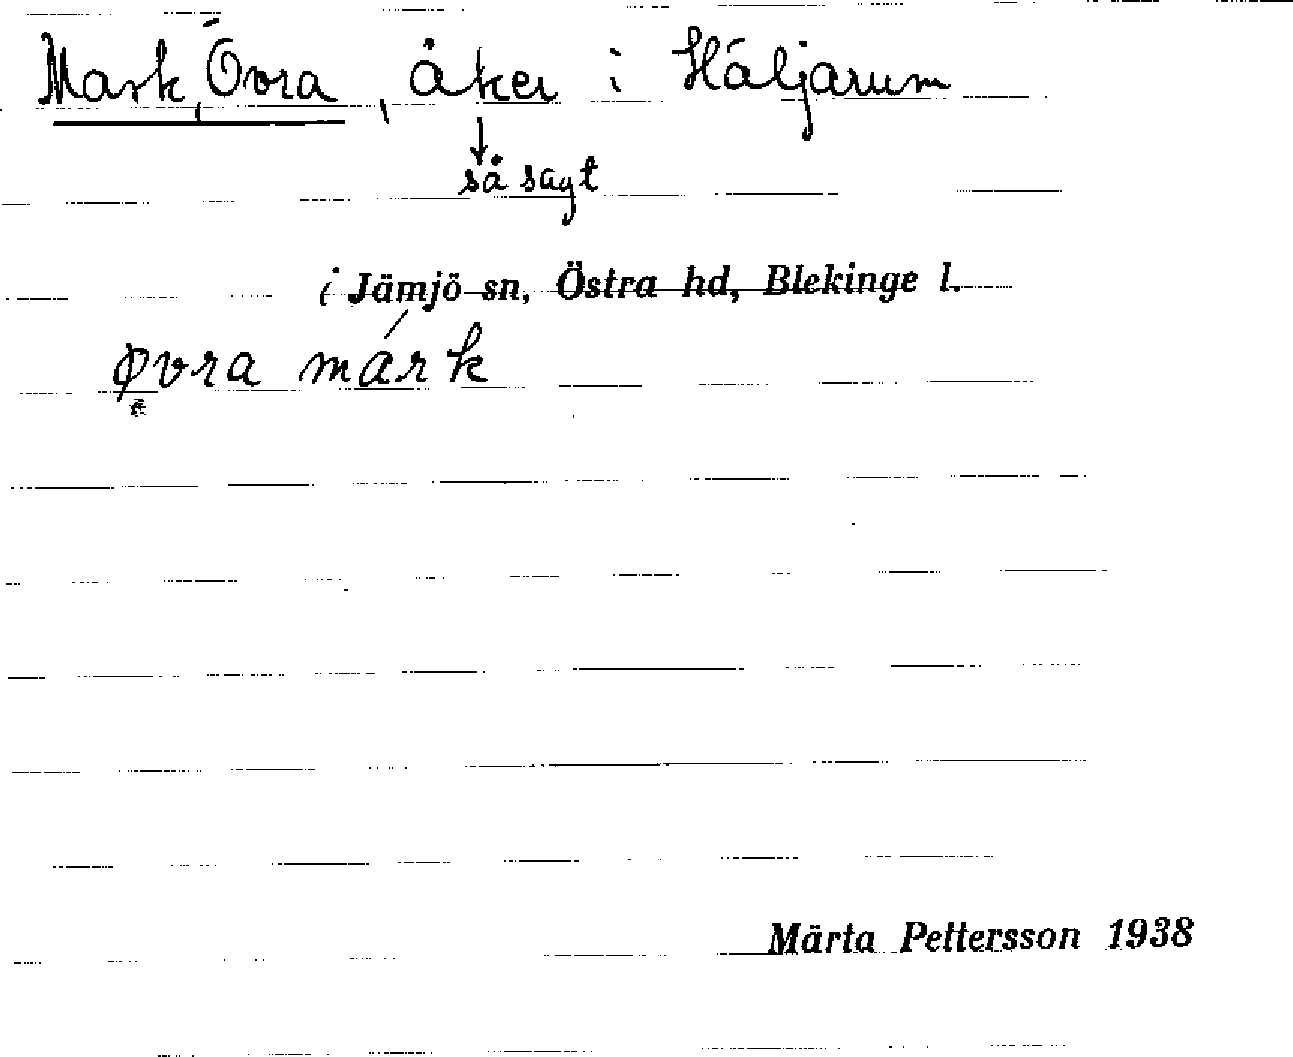 Mark, Övra, åker i Häljarum
↓
så sagt
i Jämjö sn, Östra hd, Blekinge l.
øvra márk
Märta Pettersson 1938